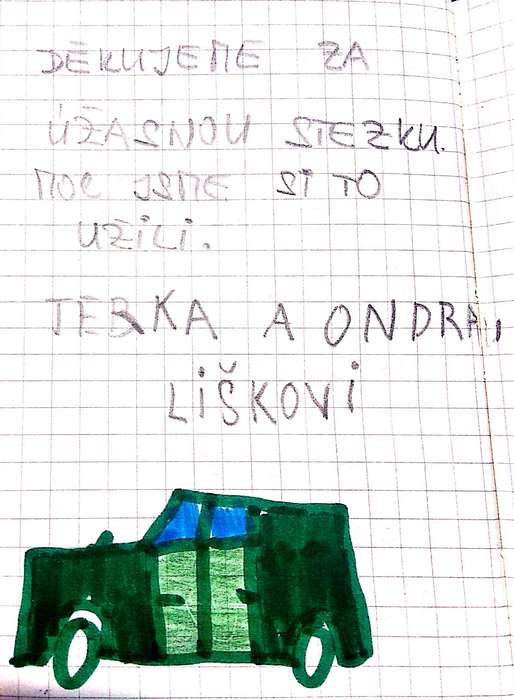 DĚKUJEME ZA
ÚŽASNOU STEZKU.
MOC JSME SI TO
UŽILI.
TERKA A ONDRA,
LIŠKOVI